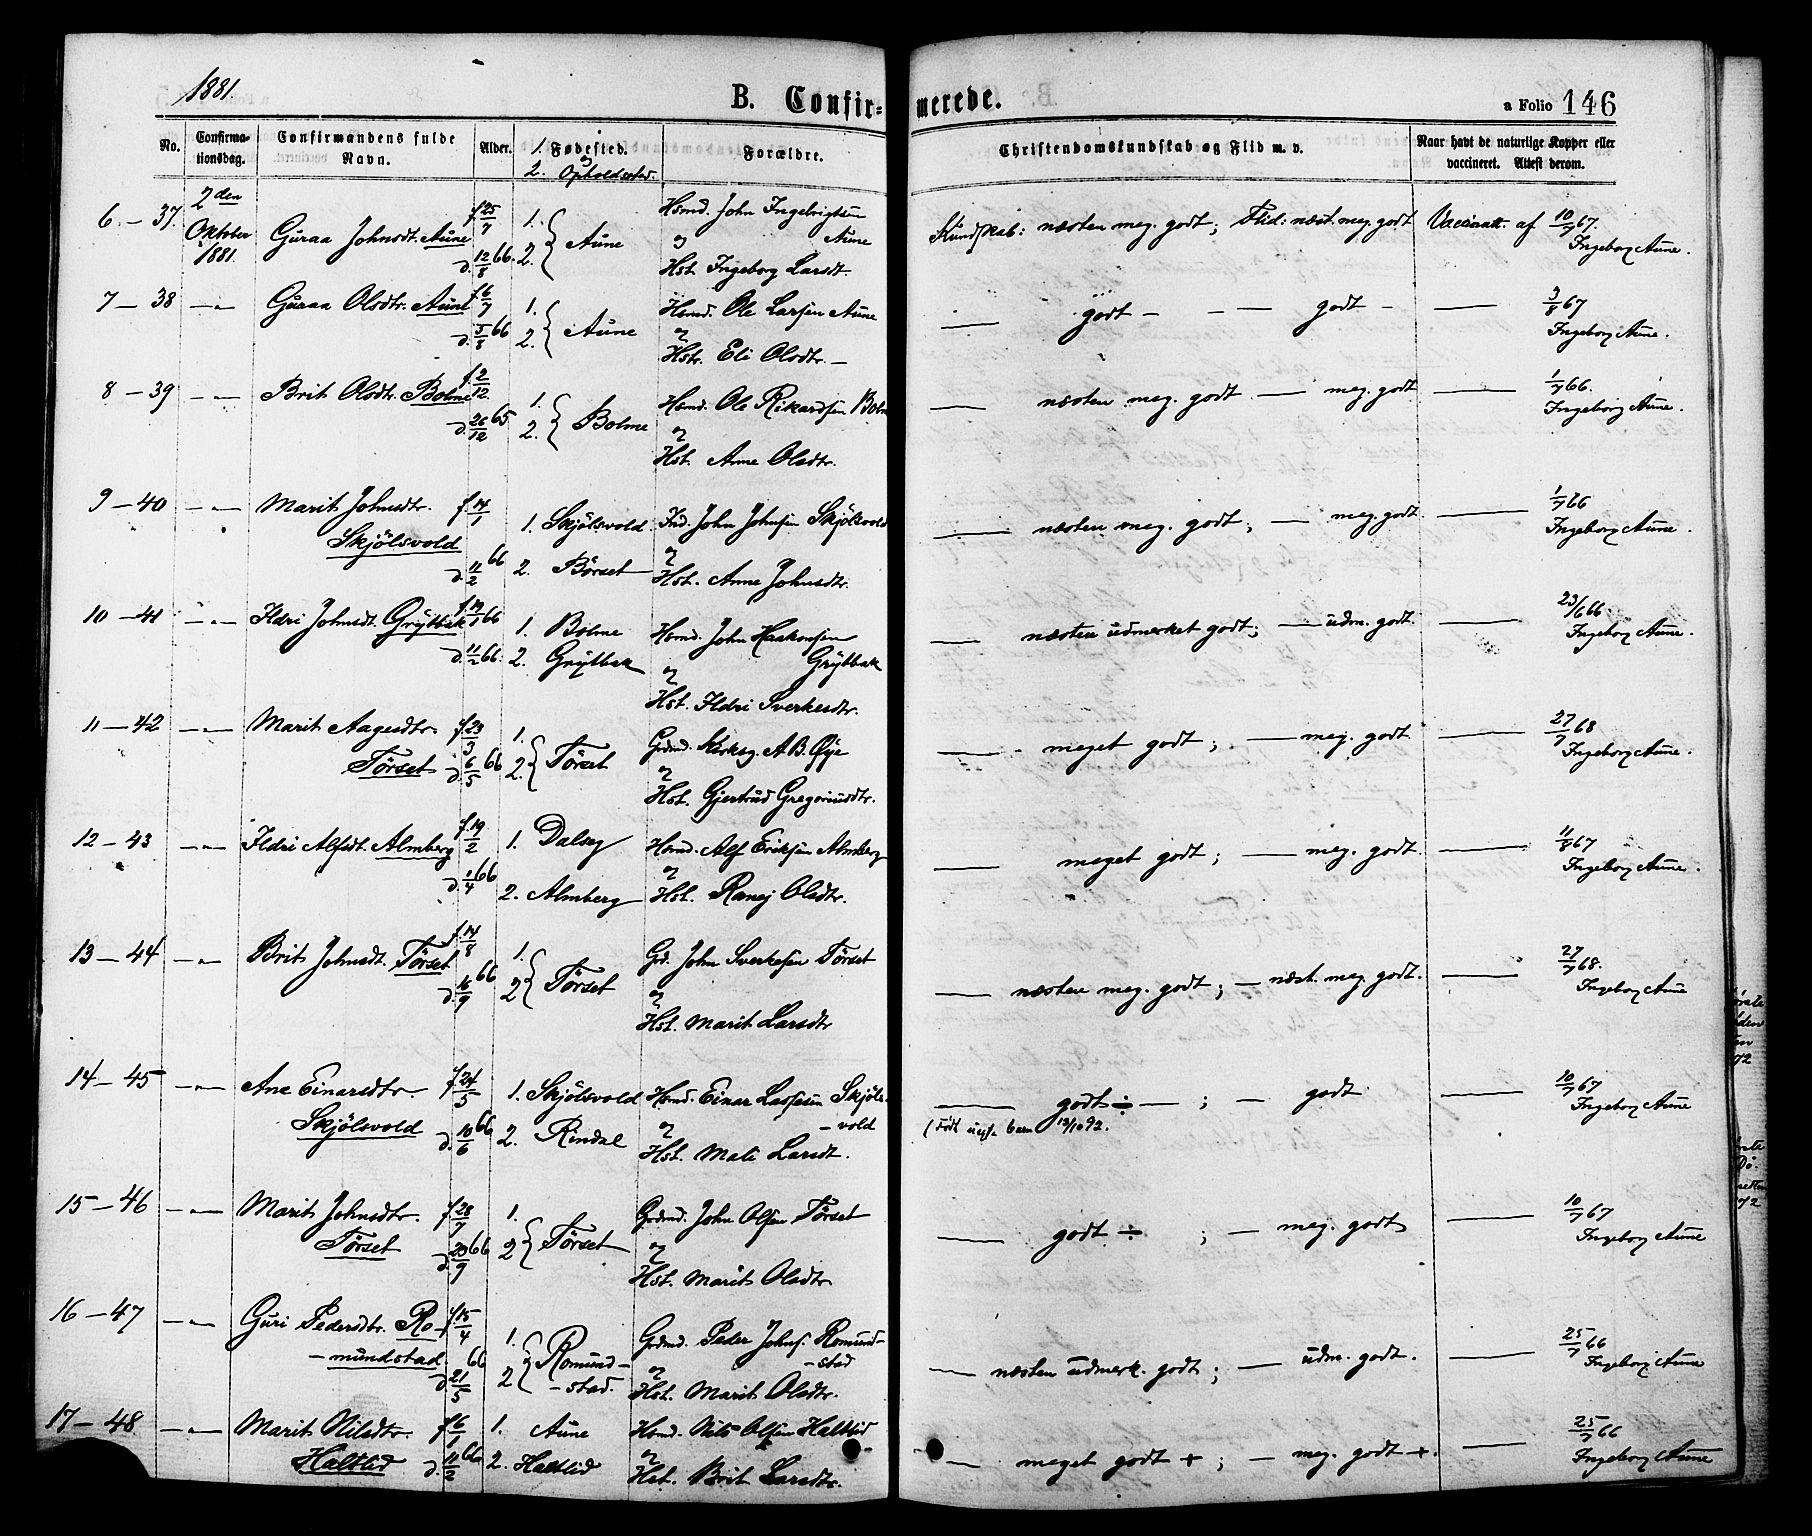 1881.
B. Confirmerede.
a Folio 146
No.
Confirmationsdag.
Confirmandens fulde Navn.
Alder.
1. Fødested. og
2. Opholdssted.
Forældre.
Christendomskundskab og Flid m. v.
Naar havt de naturlige Kopper eller
vaccineret. Attest derom.
6. – 37. 2den Oktober 1881. Guraa Johnsdt. Aune f. 25/7 d. 12/8 66. 1. 2. { Aune
Hsmd. John Ingebrigtsen Aune
og
Hst. Ingeborg Larsdt.
Kundskab: næsten meg. godt; Flid: næst. meg. godt Vaccinatt. af 10/7 67.
Ingeborg Aune.
7 – 38 – " – Guraa Olsdtr. Aune f. 6/7 d. 5/8 66 1. 2. { Aune
Hsmd. Ole Larsen Aune
og
Hstr. Eli Olsdtr. –
— godt – – godt – — 3/8 67
Ingeborg Aune.
8 – 39 – " – Brit Olsdtr. Bolme f. 2/12 d. 26/12 65 1. 2. { Bolme
Hsmd. Ole Rikardsen Bolm
og
Hst. Anne Olsdtr.
— næsten meg. godt – meg. godt — 1/7 66.
Ingeborg Aune.
9 – 40 – " – Marit Johnsdtr. Skjölsvold f. 14/1 d. 11/2 66 1. Skjölsvold
2. Börset
Ind. John Johnsen Skjölsvold
og
Hst. Anne Johnsdtr.
— næsten meg. godt; — meg. godt — 1/7 66
Ingeborg Aune.
10 – 41 – " – Ildri Johnsdt. Grytbak f. 19/1 66 d. 11/2 66. 1. Bolme
2. Grytbak
Hsmd. John Haakonsen Grytbak
og
Hst. Ildri Sverkesdtr.
— næsten udmerket godt; — udm. godt. — 23/6 66
Ingeborg Aune.
11 – 42 – " – Marit Aagesdtr. Törset f. 23/3 d. 6/5 66 1. 2. { Törset
Grdmd. Kirksg. A. B. Øye
og
Hst. Gjertrud Gregoriusdtr.
— meget godt; — meg. godt — 27/7 68
Ingeborg Aune.
12 – 43 – " – Ildri Alfsdt. Almberg f. 19/2 d. 1/4 66 1. Dalseg
2. Almberg
Hsmd. Alf Eriksen Almberg
og
Hst. Ranej Olsdtr.
— meget godt; — meg. godt. — 11/6 67
Ingeborg Aune.
13 – 44 – " – Brit Johnsdt. Törset f. 14/8 d. 16/9 66 1. 2 { Törset
Grd. John Sverkesen Törset
og
Hst. Marit Larsdtr
— næsten meg. godt; – næst. meg. godt. — 27/7 68.
Ingeborg Aune
14 – 45 – " – Ane Einarsdtr. Skjölsvold f. 24/5 d. 10/6 66 1. Skjölsvold
2. Rindal
Hsmd. Einar Larsesen Skjöls-
– vold
og
Hst. Mali Larsdt.
— godt ÷ – ; – godt — 10/7 67
Ingeborg Aune
(Født uegte barn 12/10 92.
15 – 46 – " – Marit Johnsdtr. Törset f. 28/7 d. 23/9 66 1. 2 { Törset
Grdmd. John Olsen Törset
og
Hst. Marit Olsdtr
— godt ÷ ; – meg. godt — 10/7 67
Ingeborg Aune
16 – 47 – " – Guri Pedersdtr. Ro-
– mundstad f. 15/4 d. 21/5 66 1. 2 { Romund-
– stad.
Grdmd. Peder Johns. Romund-
– stad
og
Hst. Marit Olsdtr.
— næsten udmerk. godt; — udm. godt. — 25/7 66
Ingeborg Aune
17 – 48 – " – Marit Nilsdtr. Haltlid f. 6/1 d. 11/2 66 1. Aune
2. Haltlid
Hsmd. Nils Olsen Haltlid
og
Hst. Brit Larsdtr.
— meget godt +; – meg. godt +. — 25/7 66
Ingeborg Aune